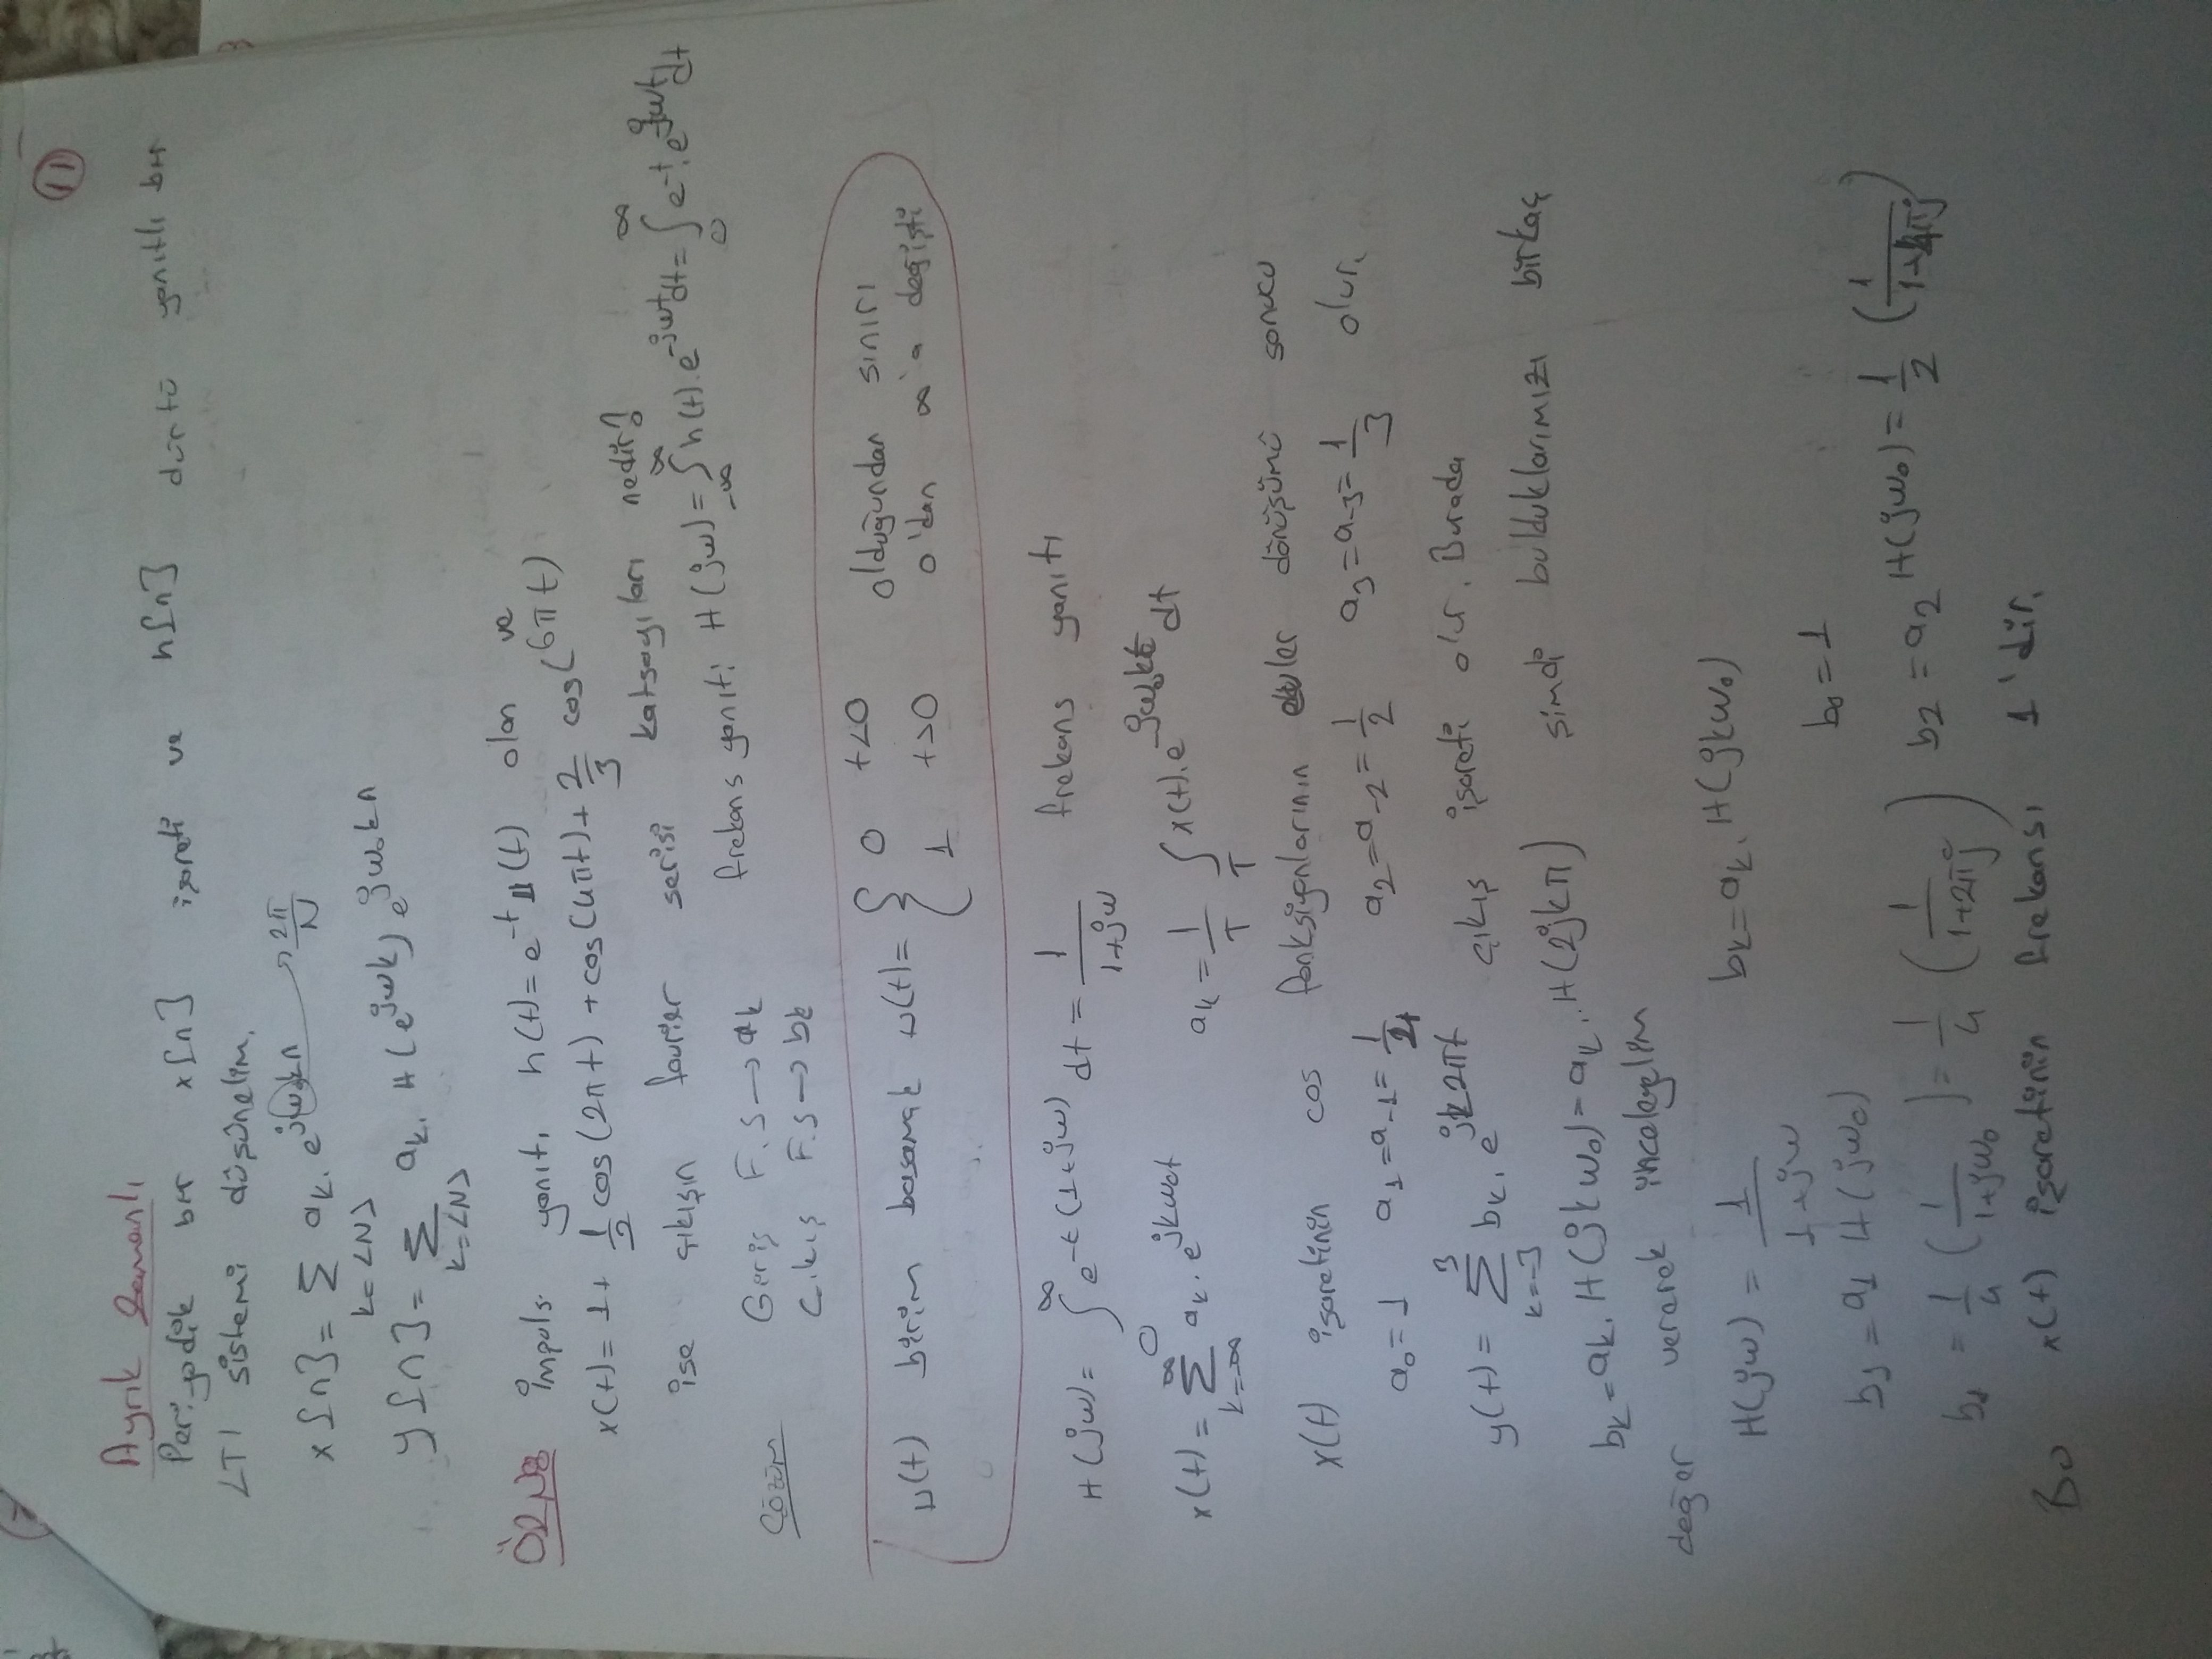 11
Ayrık Zamanlı
Periyodik bir x[n] işareti ve h[n] dürtü yanıtlı bir
LTI sistemi düşünelim.
x[n] = Σ k=<N> ak. e^jω0kn → 2π/N
y[n] = Σ k=<N> ak. H(e^jω0k) e^jω0kn
ÖRNEK impuls yanıtı h(t) = e^-t u(t) olan ve
x(t) = 1 + 1/2 cos(2πt) + cos(4πt) + 2/3 cos(6πt)
ise çıkışın fourier serisi katsayıları nedir?
Çözüm Giriş F.S → ak frekans yanıtı H(jω) = ∫-∞^∞ h(t). e^-jωt dt = ∫0^∞ e^-t. e^-jωt dt
Çıkış F.S → bk
u(t) birim basamak u(t) = { 0 t<0 olduğundan sınırı
1 t>0 0'dan ∞'a değişti
H(jω) = ∫0^∞ e^-t(1+jω) dt = 1/1+jω frekans yanıtı
x(t) = Σ k=-∞^∞ ak. e^jkω0t ak = 1/T ∫T x(t). e^-jω0kt dt
x(t) işaretinin cos fonksiyonlarının euler dönüşümü sonucu
a0 = 1 a1 = a-1 = 1/4 a2 = a-2 = 1/2 a3 = a-3 = 1/3 olur.
y(t) = Σ k=-3^3 bk. e^jk2πt çıkış işareti olur. Burada
bk = ak. H(jkω0) = ak. H(2jkπ) şimdi bulduklarımızı birkaç
değer vererek inceleyelim
H(jω) = 1/1+jω bk = ak. H(jkω0)
b1 = a1 H(jω0) b0 = 1
b1 = 1/4 (1/1+jω0) = 1/4 (1/1+2πj) b2 = a2 H(jω0) = 1/2 (1/1+4πj)
Bu x(t) işaretinin frekansı 1'dir.